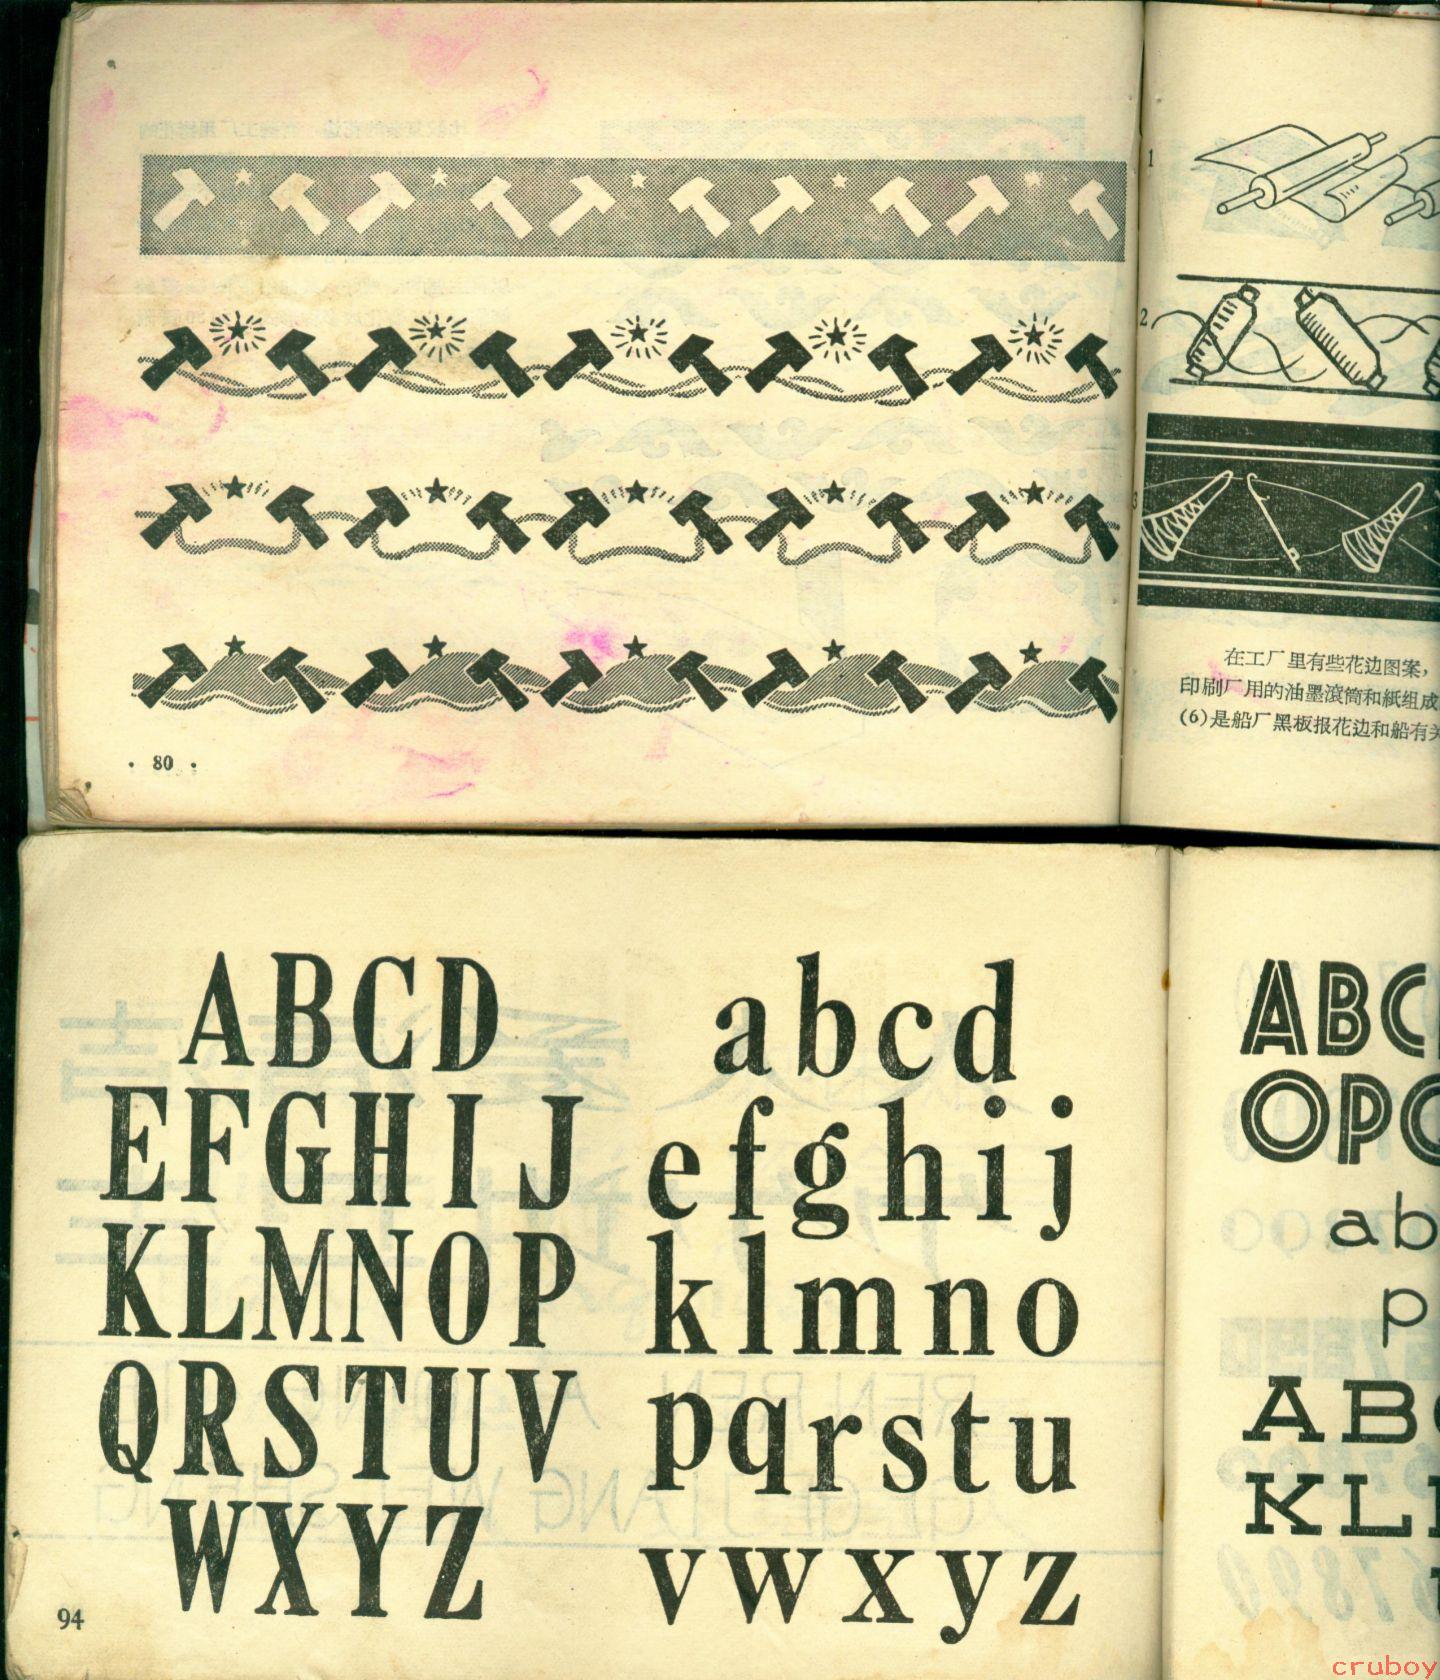 1
2
3
在工厂里有些花边图案，
印刷厂用的油墨滾筒和紙组成
(6)是船厂黑板报花边和船有关
· 80 ·
ABCD
EFGHIJ
KLMNOP
QRSTUV
WXYZ
abcd
efghij
klmno
pqrstu
vwxyz
94
ABC
OPQ
ab
p
ABC
KL
cruboy